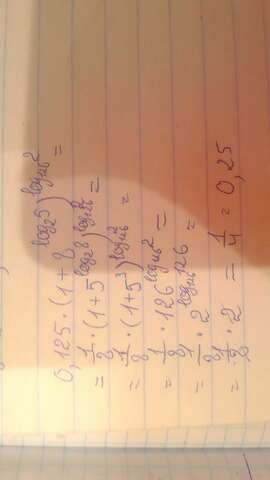 0,125 · (1+8^{log₂5})^{log₁₂₆2} =
= 1/8 · (1+5^{log₂8})^{log₁₂₆2} =
= 1/8 · (1+5³)^{log₁₂₆2} =
= 1/8 · 126^{log₁₂₆2} =
= 1/8 · 2^{log₁₂₆126} =
= 1/8 · 2 = 1/4 = 0,25